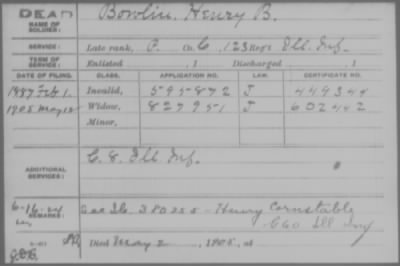 DEAD
NAME OF SOLDIER:
Bowlin, Henry B.
SERVICE:
Late rank, P. Co. C, 123 Reg't Ill. Inf.
TERM OF SERVICE:
Enlisted , 1 Discharged , 1
DATE OF FILING. CLASS. APPLICATION NO. LAW. CERTIFICATE NO.
1887 Feb 1. Invalid, 595872 J 449344
1905 May 12 Widow, 827951 J 602442
Minor,
ADDITIONAL SERVICES:
C. 8. Ill. Inf.
6-16-24
REMARKS:
See 380255 - Henry Cornstable
C 60 Ill Inf
Died May 2 , 1905, at